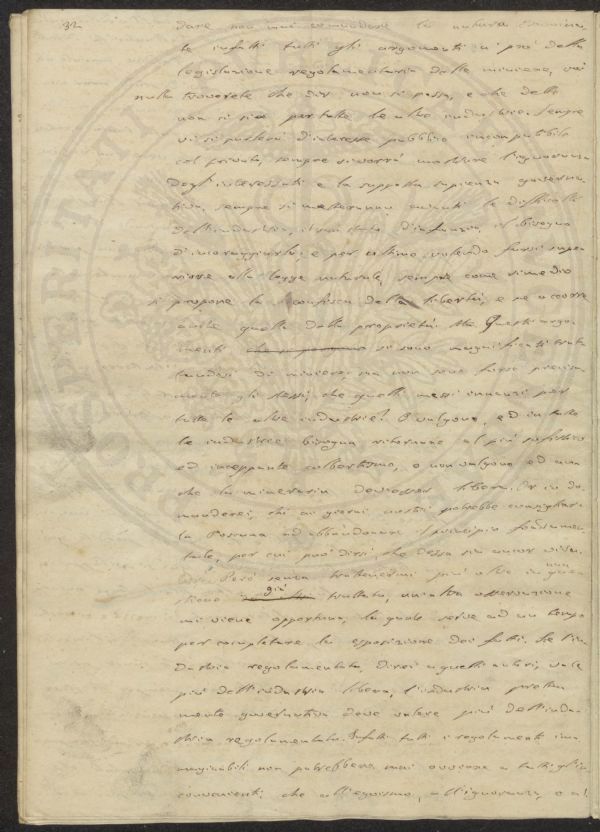 32
dare non mai comandare la natura. Esamina-
te infatti tutti gli argomenti a prò della
legislazione regolamentaria delle miniere, voi
nulla troverete che dir non si possa, e che detto
non si sia per tutte le altre industrie. Sempre
vi si parlerà d'interesse pubblico incompatibile
col privato, sempre si vorrà mostrare l'ignoranza
degl'interessati e la supposta sapienza governa-
tiva, sempre si metteranno avanti le difficoltà
dell'industria, il suo stato d'infanzia, il bisogno
d'incoraggiarla; e per ultimo volendo farsi supe-
riore alla legge naturale, sempre come rimedio
si propone la confisca della libertà, e se occorre
anche quella della proprietà. Ma questi argo-
menti che si si sono magnificati trat-
tandosi di miniere, ma non sono forse precisa-
mente gli stessi che quelli messi innanzi per
tutte le altre industrie? O valgono, ed in tutte
le industrie bisogna ritornare al più
ed inceppante colbertismo, o non valgono ed an-
che la mineraria dev'esser libera. Or io do-
manderei, chi ai giorni nostri potrebbe consigliar
la Toscana ad abbandonare il principio fondamen-
tale, per cui può dirsi che dessa sia ancor
Però senza trattenermi più oltre in una que-
stione già trattata, un'altra osservazione
mi viene opportuna, la quale serve ad un tempo
per completare la esposizione dei fatti. Se l'in-
dustria regolamentata, direi a quelli autori, vale
più dell'industria libera, l'industria pretta-
mente governativa deve valere più dell'indu-
stria regolamentata. Infatti tutti i regolamenti im-
maginabili non potrebbero mai ovviare a tutti gl'in-
convenienti che all'egoismo, all'ignoranza, e al